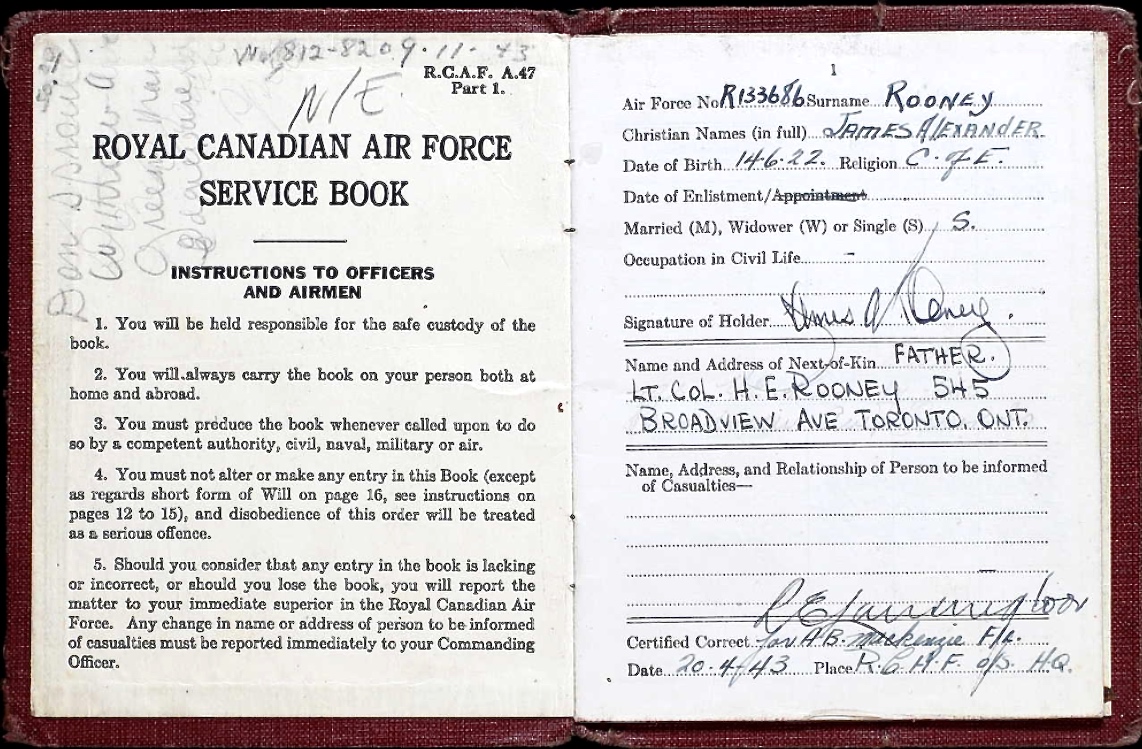 812-820 9.11.43
R.C.A.F. A.47
Part 1.
N/E.
ROYAL CANADIAN AIR FORCE
SERVICE BOOK
INSTRUCTIONS TO OFFICERS
AND AIRMEN
1. You will be held responsible for the safe custody of the
book.
2. You will always carry the book on your person both at
home and abroad.
3. You must produce the book whenever called upon to do
so by a competent authority, civil, naval, military or air.
4. You must not alter or make any entry in this Book (except
as regards short form of Will on page 16, see instructions on
pages 12 to 15), and disobedience of this order will be treated
as a serious offence.
5. Should you consider that any entry in the book is lacking
or incorrect, or should you lose the book, you will report the
matter to your immediate superior in the Royal Canadian Air
Force. Any change in name or address of person to be informed
of casualties must be reported immediately to your Commanding
Officer.
1
Air Force No R133686 Surname ROONEY
Christian Names (in full) JAMES ALEXANDER.
Date of Birth 14.6.22. Religion C. of E.
Date of Enlistment/Appointment
Married (M), Widower (W) or Single (S) S.
Occupation in Civil Life -
Signature of Holder James A Rooney.
Name and Address of Next-of-Kin FATHER.
LT. COL. H. E. ROONEY 545
BROADVIEW AVE TORONTO. ONT.
Name, Address, and Relationship of Person to be informed
of Casualties—
Certified Correct for A.B. Mackenzie F/L.
Date 20.4.43 Place R.C.A.F. o/s. H.Q.